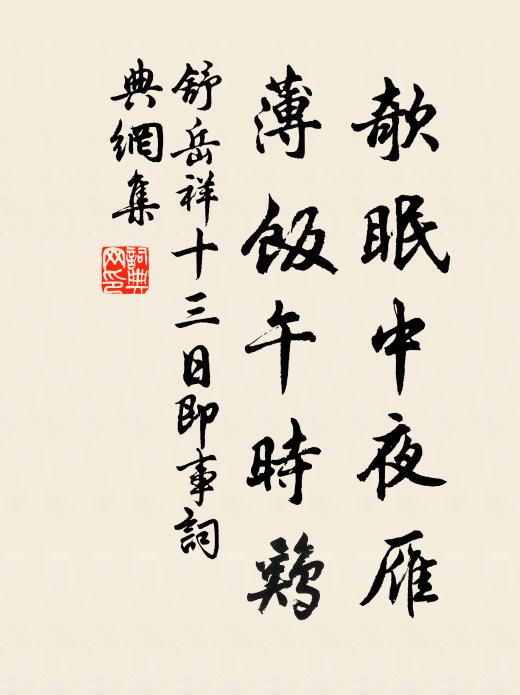 欹眠中夜雁
薄飯午時鷄
舒岳祥十三日即事詞
典網集
詞典網印